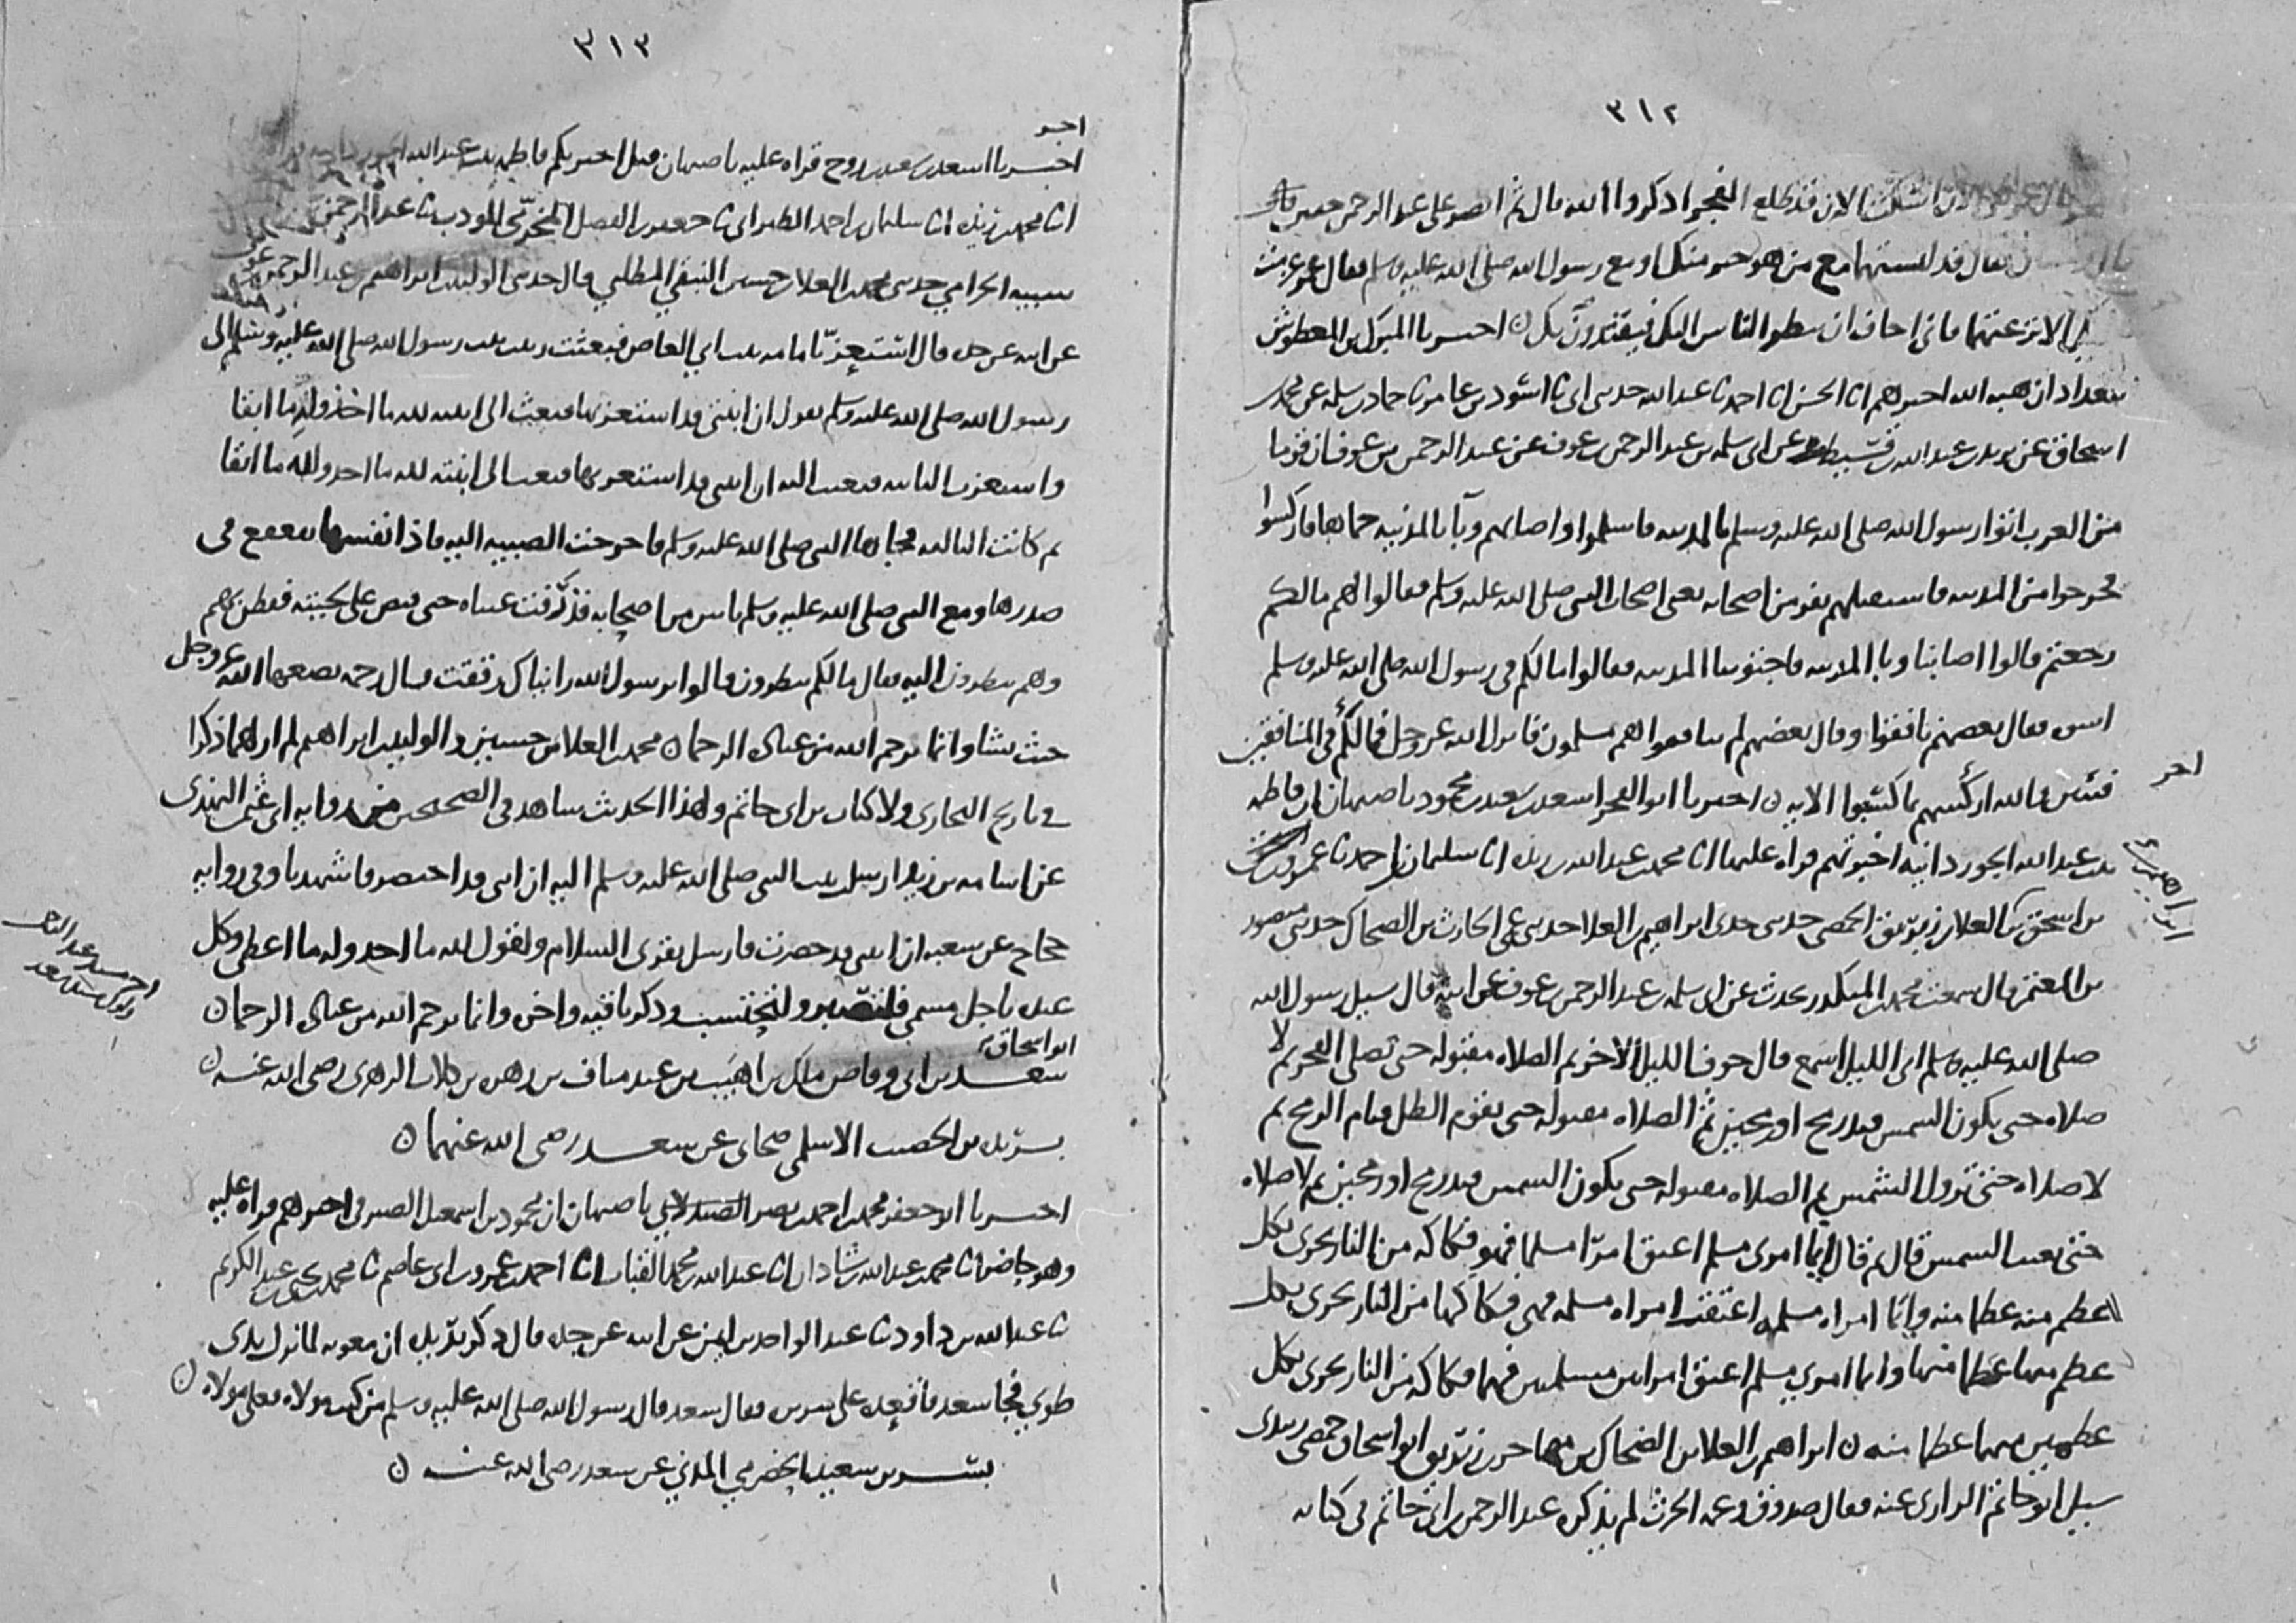 ٣١٢
الان اسكت الان قد طلع الفجر اذكروا الله قال ثم ابصر على عبد الرحمن خفين
فقال قد لبستهما مع من هو خير منك او مع رسول الله صلى الله عليه وسلم فقال عمر عزمت
الا نزعتهما فانى اخاف ان ينظر الناس اليك فيقتدون بك ن اخبرنا المبرك بن المعطوش
ببغداد ان هبه الله اخبرهم انا الحسن انا احمد نا عبد الله حدثنى ابى نا اسود بن عامر نا حماد بن سلمه عن محمد بن
اسحاق عن يزيد بن عبد الله بن قسيط عن ابى سلمه بن عبد الرحمن بن عوف عن عبد الرحمن بن عوف ان قوما
من العرب اتوا رسول الله صلى الله عليه وسلم بالمدينه فاسلموا واصابهم وبآ بالمدينه حماها فاركسوا
فخرجوا من المدينه فاستقبلهم نفر من اصحابه يعنى اصحاب النبى صلى الله عليه وسلم فقالوا لهم مالكم
رجعتم قالوا اصابنا وبا المدينه فاجتوينا المدينه فقالوا مالكم فى رسول الله صلى الله عليه وسلم
اسوه فقال بعضهم نافقوا وقال بعضهم لم ينافقوا هم مسلمون فانزل الله عز وجل فمالكم فى المنافقين
فئتين والله اركسهم بما كسبوا الايه ن اخبرنا ابو الفخر اسعد بن سعيد بن محمود باصبهان ان فاطمه
بنت عبد الله الجوزدانيه اخبرتهم قراه عليها انا محمد بن عبد الله بن ريذه انا سليمان بن احمد نا عمرو
بن اسحق بن العلاء بن زبريق الحمصى حدثنى جدى ابراهيم بن العلا حدثنى عمى الحارث بن الضحاك حدثنى منصور
بن المعتمر قال سمعت محمد بن المنكدر يحدث عن ابى سلمه بن عبد الرحمن بن عوف عن ابيه قال سيل رسول الله
صلى الله عليه وسلم اى الليل اسمع قال جوف الليل الاخر ثم الصلاه مقبوله حتى تصلى الفجر ثم لا
صلاه حتى يكون الشمس قيد رمح او رمحين ثم الصلاه مقبوله حتى يقوم الظل قيام الرمح ثم
لا صلاه حتى تزول الشمس ثم الصلاه مقبوله حتى يكون الشمس قيد رمح او رمحين ثم لا صلاه
حتى تغيب الشمس قال ثم قال ايما امرى مسلم اعتق امرا مسلما فهو فكاكه من النار يجرى بكل
عظم منه عظما منه وايما امراه مسلمه اعتقت امراه مسلمه فهى فكاكها من النار يجرى بكل
عظم منها عظما منها وايما امرى مسلم اعتق امراتين مسلمتين فهما فكاكه من النار يجرى بكل
عظمين منهما عظما منه ن ابراهيم بن العلا بن الضحاك بن مهاجر بن زبريق ابو اسحاق حمصى زبيدى
سيل ابو حاتم الرازى عنه فقال صدوق وعمه الحرث لم يذكره عبد الرحمن بن ابى حاتم فى كتابه
اخر
٣١٣
اخر
اخبرنا اسعد بن سعيد بن روح قراه عليه باصبهان قيل اخبرتكم فاطمه بنت عبد الله
انا محمد بن ريذه انا سليمان بن احمد الطبرانى نا جعفر بن الفضل المخرمى المودب نا عبد الرحمن بن
شيبه الحزامى حدثنى محمد بن العلا بن حسين النبقى المطلبى قال حدثنى الوليد بن ابراهيم بن عبد الرحمن بن عوف
عن ابيه عن جده قال استعز بامامه بنت ابى العاص فبعثت زينب بنت رسول الله صلى الله عليه وسلم الى
رسول الله صلى الله عليه وسلم يقول ان ابنتى قد استعز بها فبعث الى ابنته لله ما اخذ ولله ما ابقا
واستعز بها الثانيه فبعثت اليه ان ابنتى قد استعز بها فبعث الى ابنته لله ما اخذ ولله ما ابقا
ثم كانت الثالثه فجاها النبى صلى الله عليه وسلم فاخرجت الصبيه اليه فاذا نفسها تقعقع فى
صدرها ومع النبى صلى الله عليه وسلم ناس من اصحابه فذرفت عيناه حتى قبص على لحيته ففطن بهم
وهم ينظرون اليه فقال مالكم تنظرون قالوا يرسول الله رايناك رققت قال رحمه يضعها الله عز وجل
حيث يشا وانما يرحم الله من عباده الرحما ن محمد بن العلا بن حسين والوليد بن ابراهيم لم ار لهما ذكرا
فى تاريخ البخارى ولا كتاب بن ابى حاتم ولهذا الحديث شاهد فى الصحيحين من روايه ابى عثمن النهدى
عن اسامه بن زيد ارسلت بنت النبى صلى الله عليه وسلم اليه ان ابنى قد احتضر فاشهدنا وفى روايه
حجاج عن شعبه ان ابنتى قد حضرت فارسل يقرى السلام ويقول لله ما اخذ وله ما اعطى وكل
عنده باجل مسمى فلتصبر ولتحتسب وذكر باقيه واخره وانما يرحم الله من عباده الرحما ن
ابو اسحاق
سعد بن ابى وقاص ملك بن اهيب بن عبد مناف بن زهره بن كلاب الزهرى رضى الله عنه ن
بريده بن الحصيب الاسلمى صحابى عن سعد رضى الله عنهما ن
اخبرنا ابو جعفر محمد بن احمد بن نصر الصيدلانى باصبهان ان محمود بن اسمعيل الصيرفى اخبرهم قراه عليه
وهو حاضر انا محمد بن عبد الله بن شاذان انا عبد الله بن محمد القباب انا احمد بن عمرو بن ابى عاصم نا محمد بن يحيى بن عبد الكريم
نا عبد الله بن داود نا عبد الواحد بن ايمن عن ابيه عن جده قال ذكر بريده ان معويه لما نزل بذى
طوى فجا سعد فاقعده على سريره فقال سعد قال رسول الله صلى الله عليه وسلم من كنت مولاه فعلى مولاه ن
بسر بن سعيد الحضرمى المدنى عن سعد رضى الله عنه ن